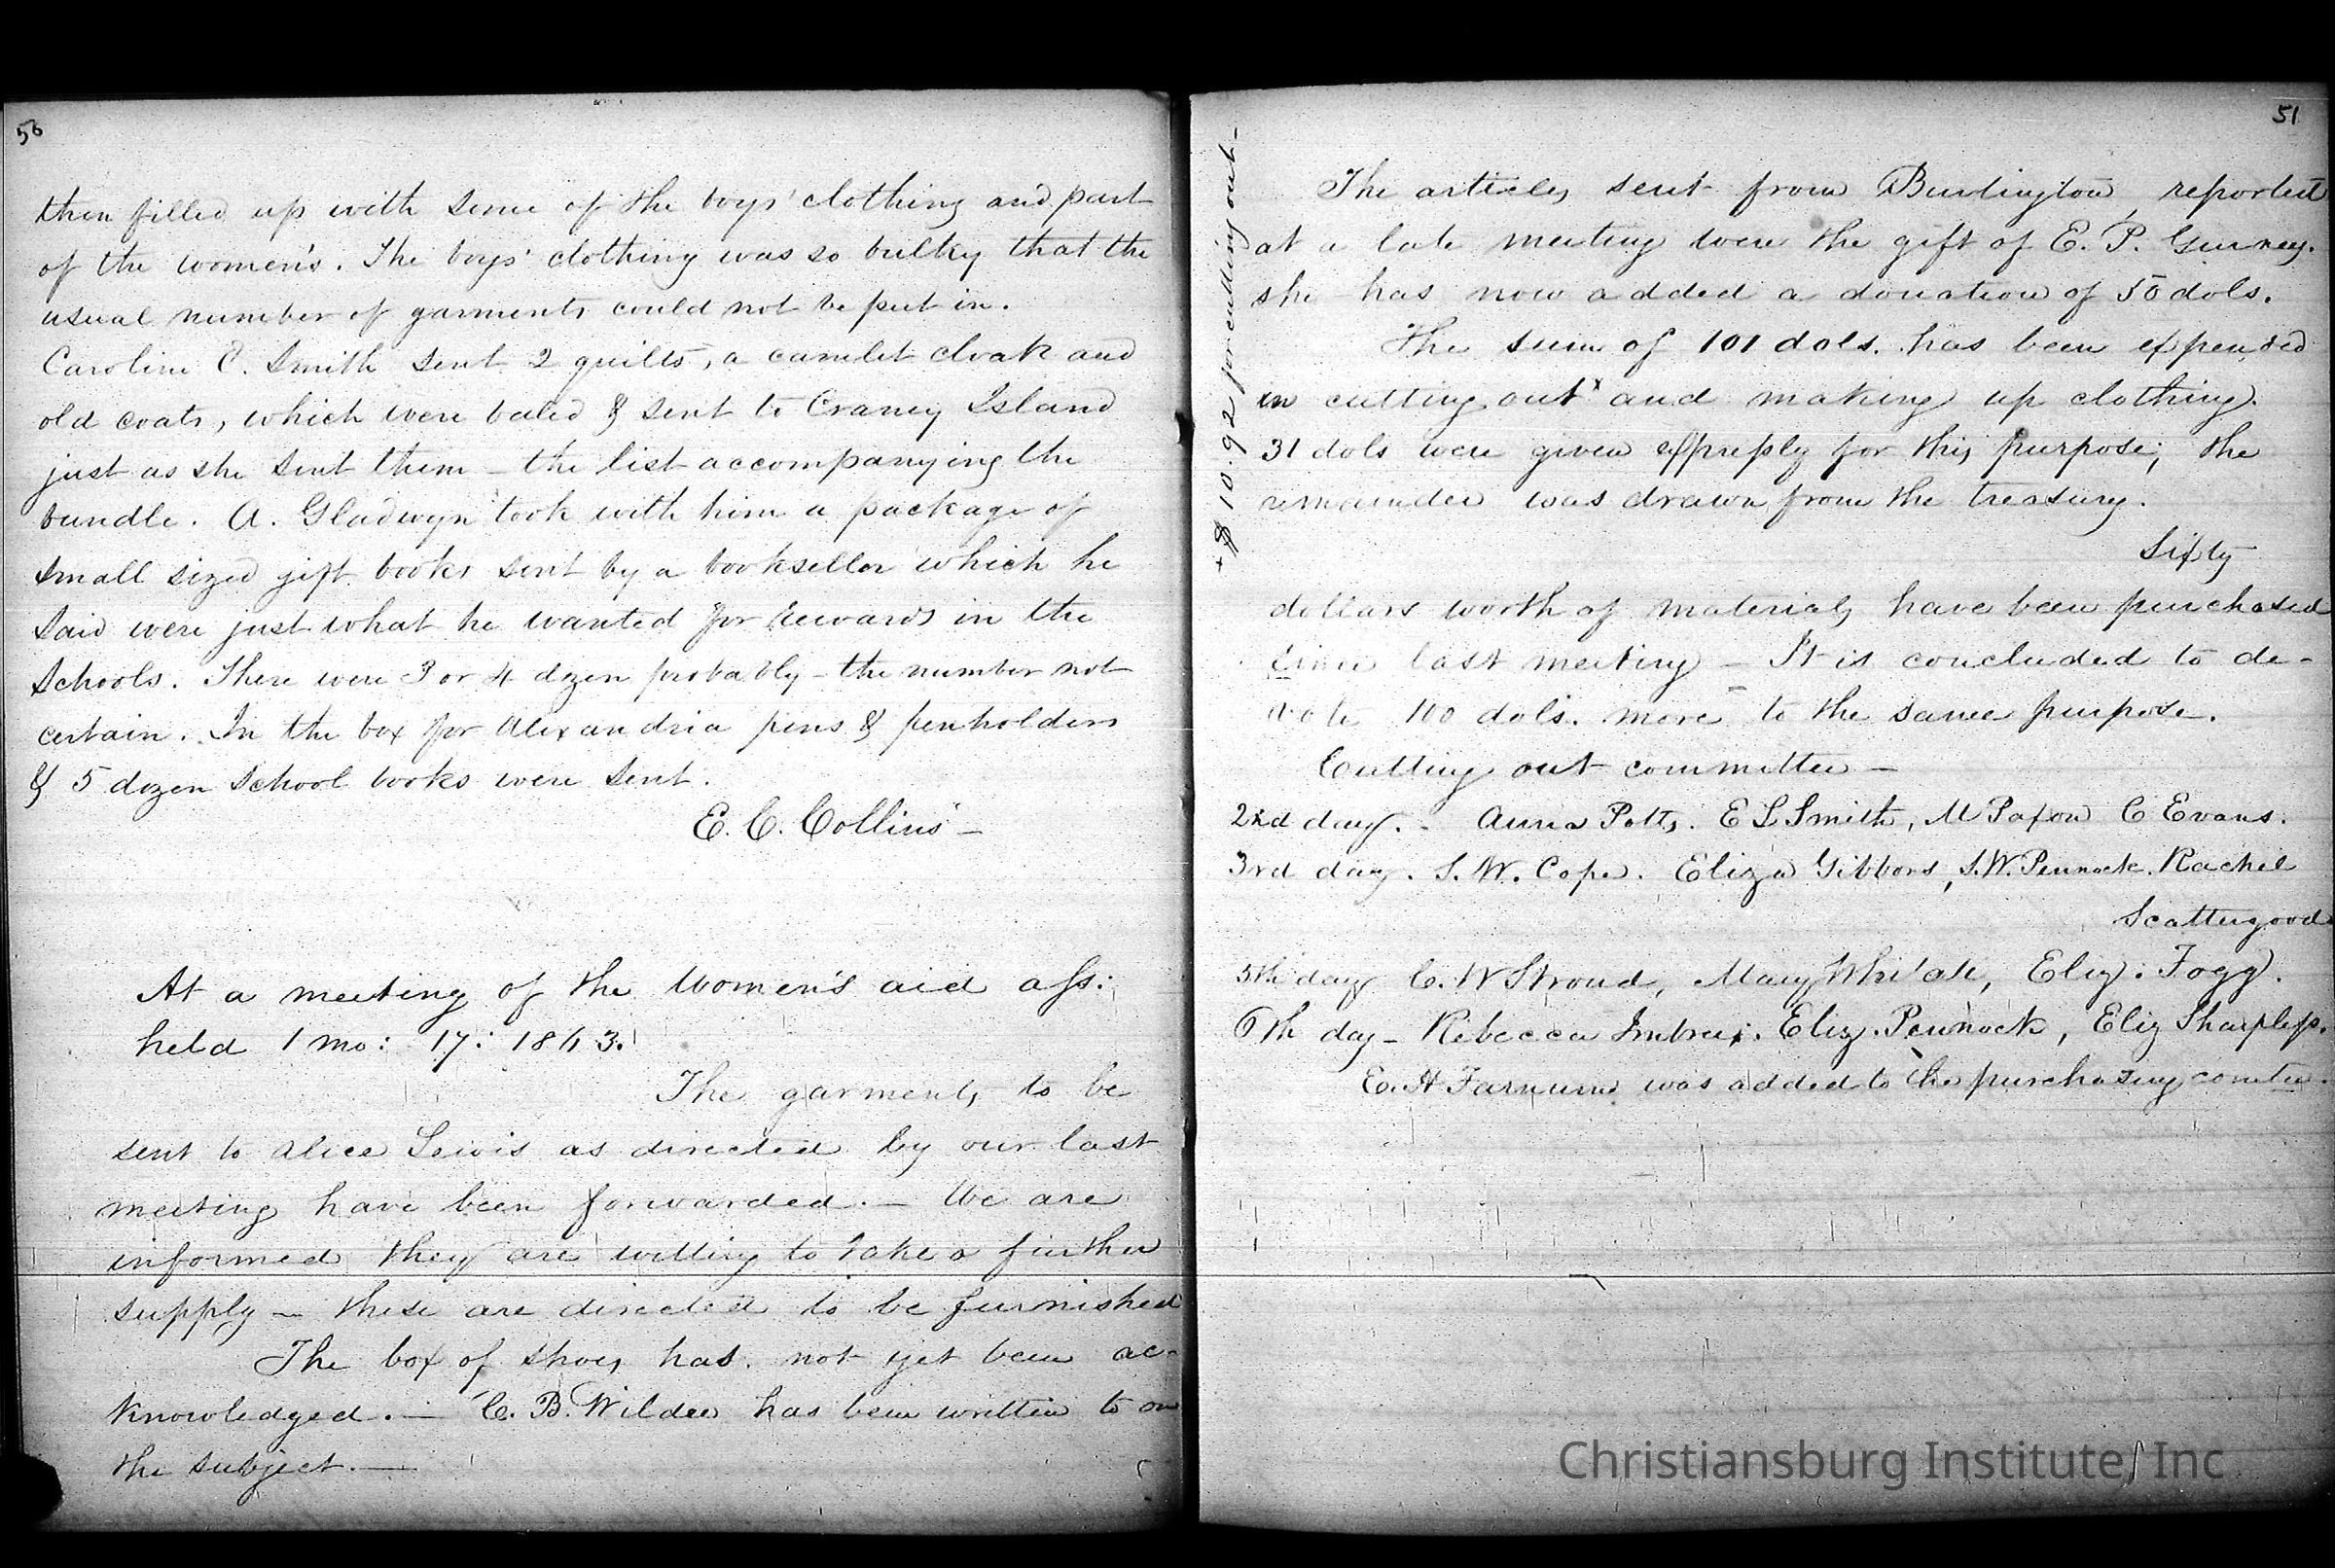 50
then filled up with some of the boys' clothing and part
of the women's. The boys' clothing was so bulky that the
usual number of garments could not be put in.
Caroline C. Smith sent 2 quilts, a camlet cloak and
old coats, which were baled & sent to Craney Island
just as she sent them - the list accompanying the
bundle. A. Gladwyn took with him a package of
small sized gift books sent by a bookseller which he
said were just what he wanted for rewards in the
Schools. There were 3 or 4 dozen probably - the number not
certain. In the box for Alexandria pens & penholders
& 5 dozen School books were sent.
E. C. Collins -
At a meeting of the Women's aid ass:
held 1 mo: 17: 1863.
The garments to be
sent to Alice Lewis as directed by our last
meeting have been forwarded. - We are
informed they are willing to take a further
supply - these are directed to be furnished
The box of shoes has not yet been ac-
knowledged. - C. B. Wilder has been written to on
the subject. -
51
The articles sent from Burlington reported
at a late meeting were the gift of E. P. Gurney.
she has now added a donation of 50 dols.
The sum of 101 dols. has been expended
in cutting out x and making up clothing.
31 dols were given expressly for this purpose; the
remainder was drawn from the treasury.
Sixty
dollars worth of materials have been purchased
since last meeting - It is concluded to de-
vote 100 dols. more to the same purpose.
Cutting out committee -
2nd day. - Anna Potts. E L Smith, M Paxon C Evans.
3rd day. S. W. Cope. Eliza Gibbons, S. W. Pennock. Rachel
Scattergood
5th day C. W Stroud, Mary Whitall, Eliz: Fogg.
6th day - Rebecca Imbrei. Eliz. Pennock, Eliz Sharpless.
E. H Farnum was added to the purchasing comtee.
x $10.92 for cutting out -
Christiansburg Institute, Inc